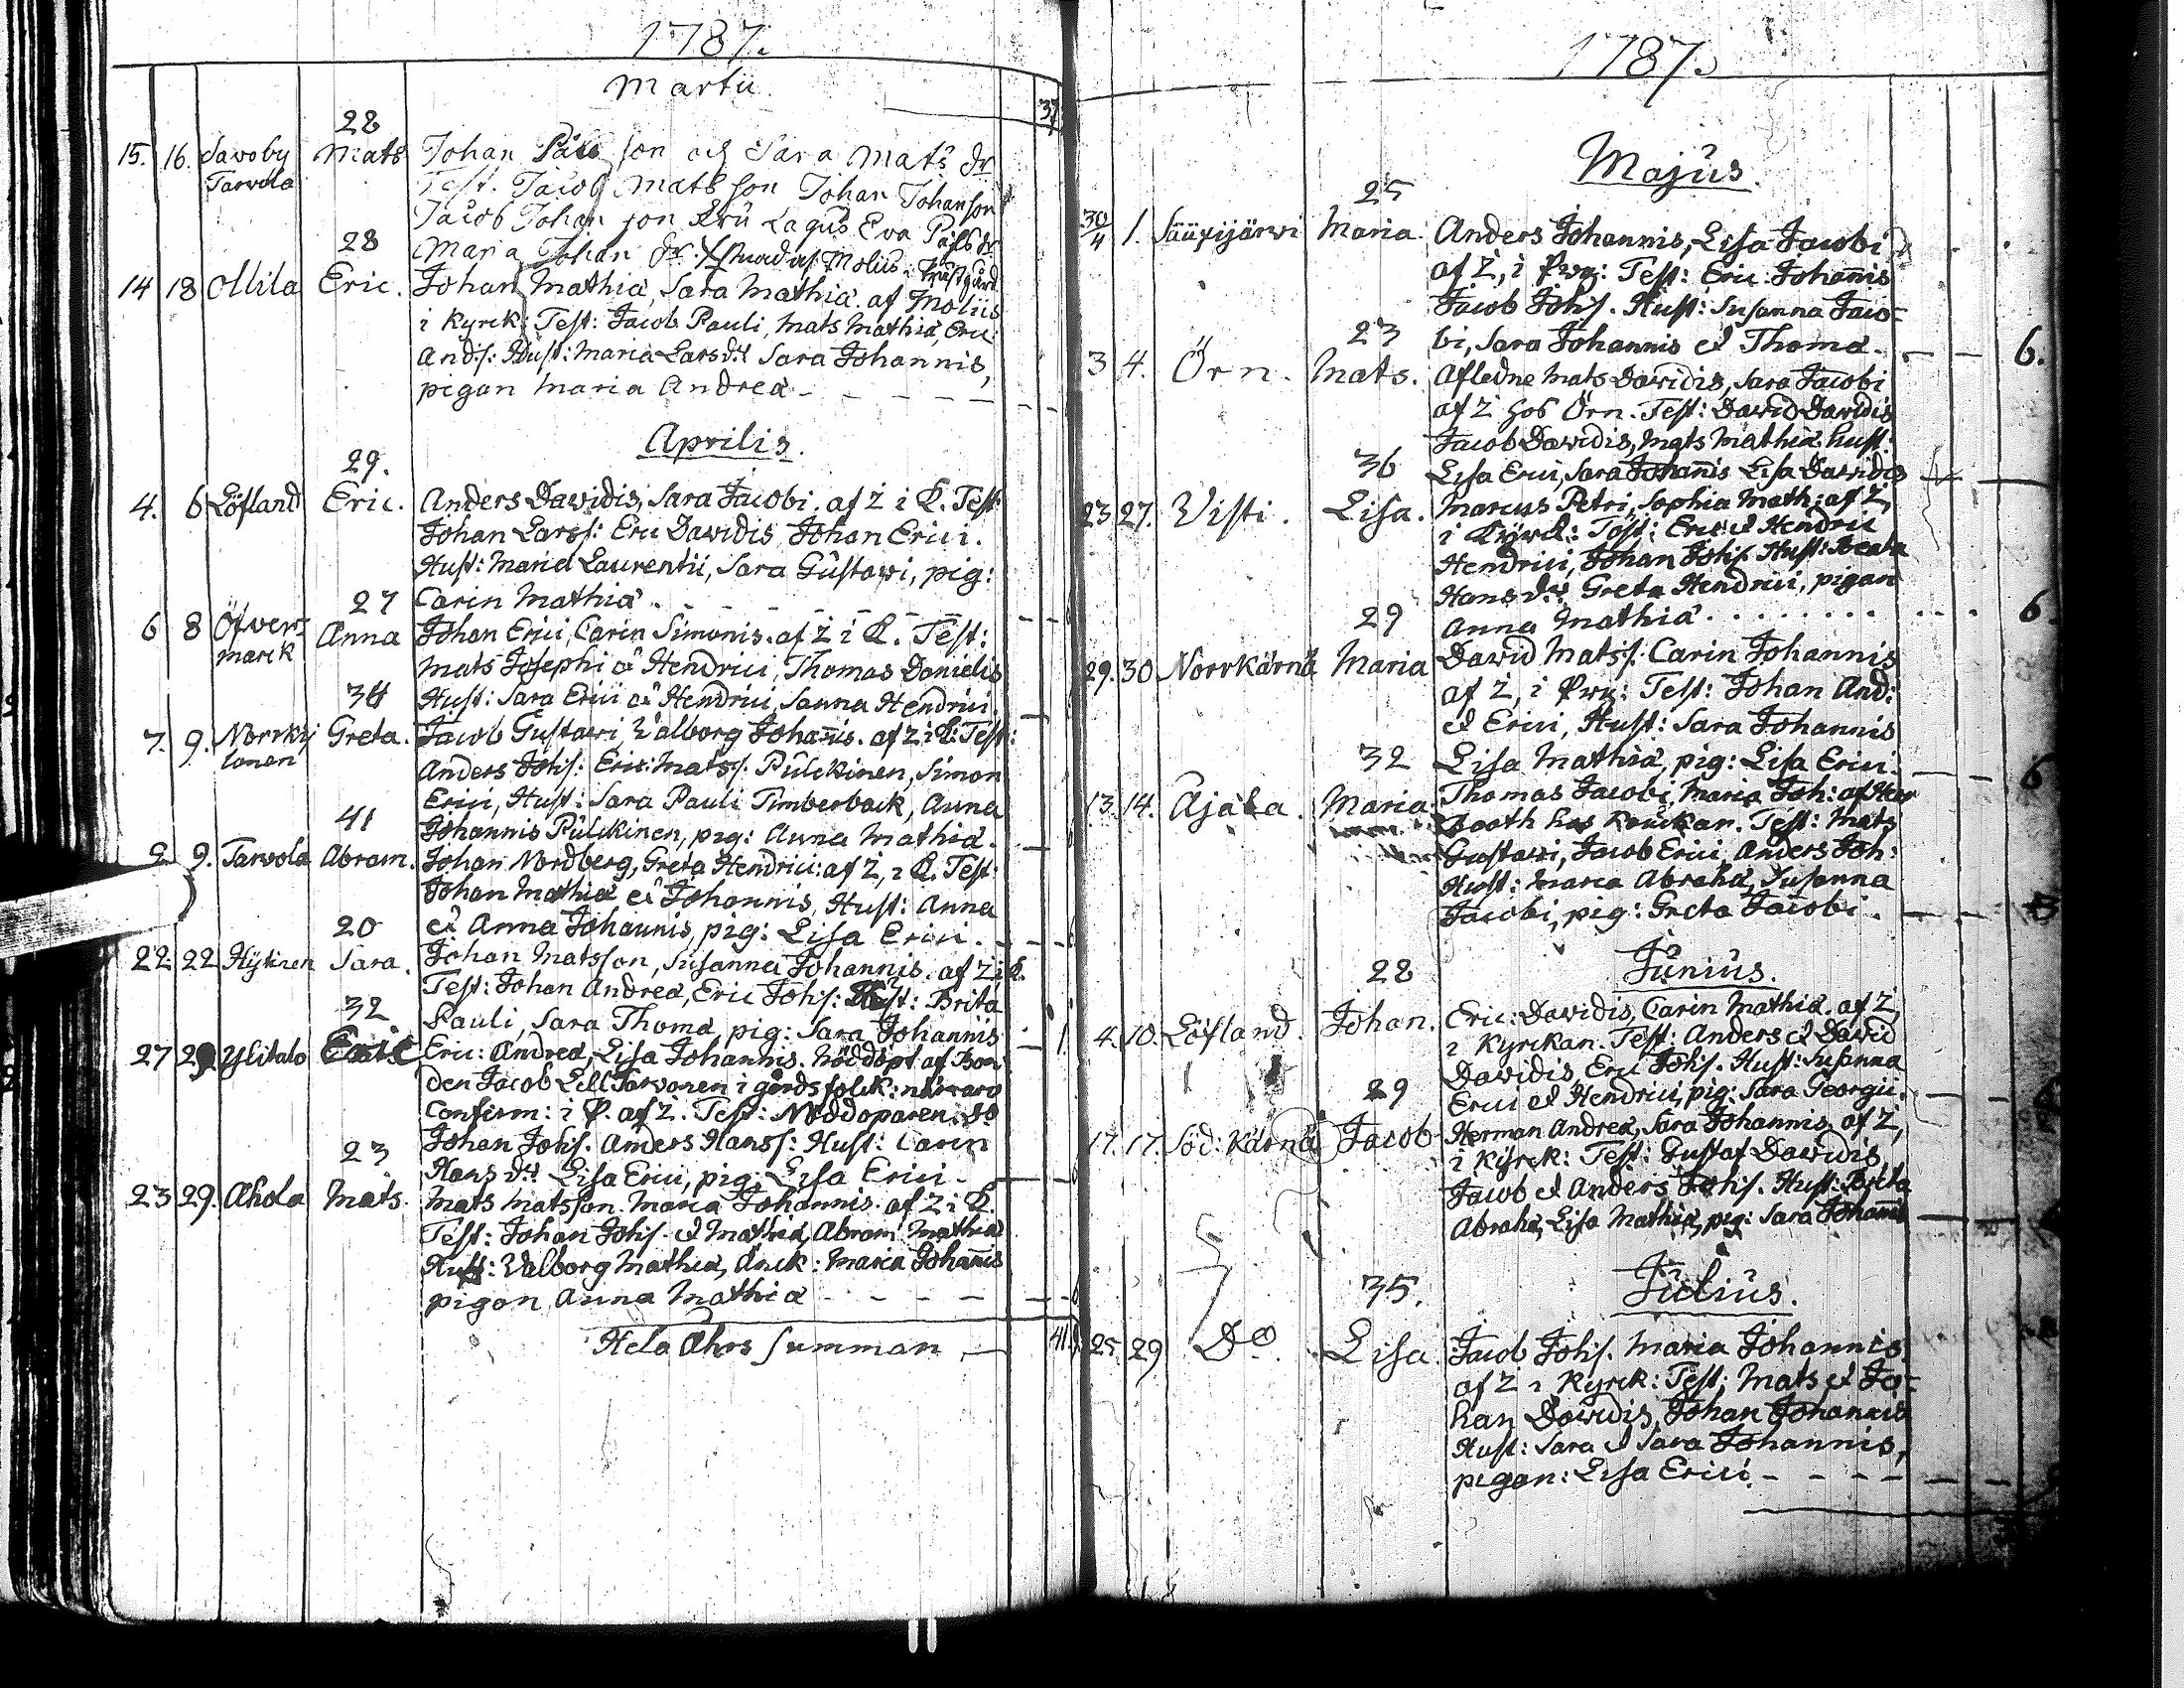 1787.
Martii
37
28
15. 16. Savoby Mats Johan Påls son och Sara Mats dr
Tarvola Test. Jacob Matsson Johan Johanson
Jacob Johan son Eva Pålsdr
28 Maria Johan dr.
14 18 Ollila Eric. Johan Mathiæ, Sara Mathiæ. af Molüs
i Kyrck: Test: Jacob Pauli, Mats Mathiæ, Eric
Ands: Hust: Maria Larsdr Sara Johannis,
pigan Maria Andreæ
Aprilis.
29.
4. 6 Löfland Eric. Anders Davidis, Sara Jacobi. af Z i K. Test:
Johan Larss: Eric Davidis Johan Erici.
Hust: Maria Laurentii, Sara Gustavi, pig:
27 Carin Mathiæ.
6 8 Öfver Anna Johan Erici, Carin Simonis. af Z i K. Test:
marck Mats Josephi et Hendrici, Thomas Danielis
34 Hust: Sara Erici et Hendrici, Sanna Hendrici.
7. 9. Norrky Greta. Jacob Gustavi, Walborg Johannis. af Z i K: Test:
lonen Anders Johs: Eric: Matss. Pulckinen, Simon
Erici, Hust: Sara Pauli Timberback, Anna
41 Johannis Pulckinen, pig: Anna Mathiæ.
9. 9. Tarvola Abram. Johan Nordberg, Greta Hendrici: af Z, i K. Test:
Johan Mathiæ et Johannis, Hust: Anna
20 et Anna Johannis, pig: Lisa Erici.
22 22 Hytinen Sara. Johan Matsson, Susanna Johannis. af Z i K.
Test: Johan Andreæ, Eric Johs: Hust: Brita
32 Pauli, Sara Thomæ, pig: Sara Johannis
27 29 Ylitalo Eric Eric: Andreæ, Lisa Johannis. Nöddöpt af Bon
den Jacob Lill Tarvonen i gårds folck: närvaro
Conferm: i P. af Z. Test: Nöddoparen. do
Johan Johs. Anders Hanss: Hust: Carin
23 Hans dr Lisa Erici, pig: Lisa Erici.
23 29. Ahola Mats. Mats Matsson. Maria Johannis. af Z i K.
Test: Johan Johs. et Mathiæ, Abram Mathiæ
Hust: Valborg Mathiæ, Anck: Maria Johannis
pigan Anna Mathiæ
Hela Åhrs Summan 41
1787.
Majus.
25
30/4 1. Sääxijärwi Maria. Anders Johannis, Lisa Jacobi
af Z, i Prg: Test: Eric Johannis
Jacob Johs. Hust: Susanna Jaco-
23 bi, Sara Johannis et Thomæ. 6.
3 4. Örn. Mats. Afledne Mats Davidis, Sara Jacobi
af Z hos Örn. Test: David Davidis
Jacob Davidis, Mats Mathiæ hust:
36 Lisa Erici, Sara Johannis Lisa Davidis
23 27. Visti. Lisa. Marcus Petri, Sophia Math: af Z,
i Kyrck: Test: Eric et Hendric
Hendrici, Johan Johs. Hust: Beata
Hans dr Greta Hendrici, pigan
29 Anna Mathiæ 6
29. 30 Norrkärnä Maria David Matss. Carin Johannis
af Z, i Prg: Test: Johan And:
et Erici, Hust: Sara Johannis
32 Lisa Mathiæ, pig: Lisa Erici. 6
13. 14. Ajala. Maria Thomas Jacobi, Maria Joh: af Herr
Test: Mats
Gustavi, Jacob Erici, Anders Joh:
Hust: Maria Abrahæ, Susanna
Jacobi, pig: Greta Jacobi.
Junius.
28
4. 10. Löfland. Johan. Eric: Davidis, Carin Mathiæ. af Z,
i Kyrckan. Test: Anders et David
Davidis Eric Johs. Hust: Susanna
29 Erici et Hendrici, pig: Sara Georgii.
17. 17. Söd: Kärnä Jacob Herman Andreæ, Sara Johannis, af Z,
i Kyrck: Test: Gustaf Davidis
Jacob et Anders Johs. Hust: Brita
Abrahæ, Lisa Mathiæ, pig: Sara Johannis
Julius.
35.
25 29 Do. Lisa. Jacob Johs. Maria Johannis
af Z i Kyrck: Test: Mats et Jo-
han Davidis, Johan Johannis
Hust: Sara et Sara Johannis,
pigan: Lisa Erici